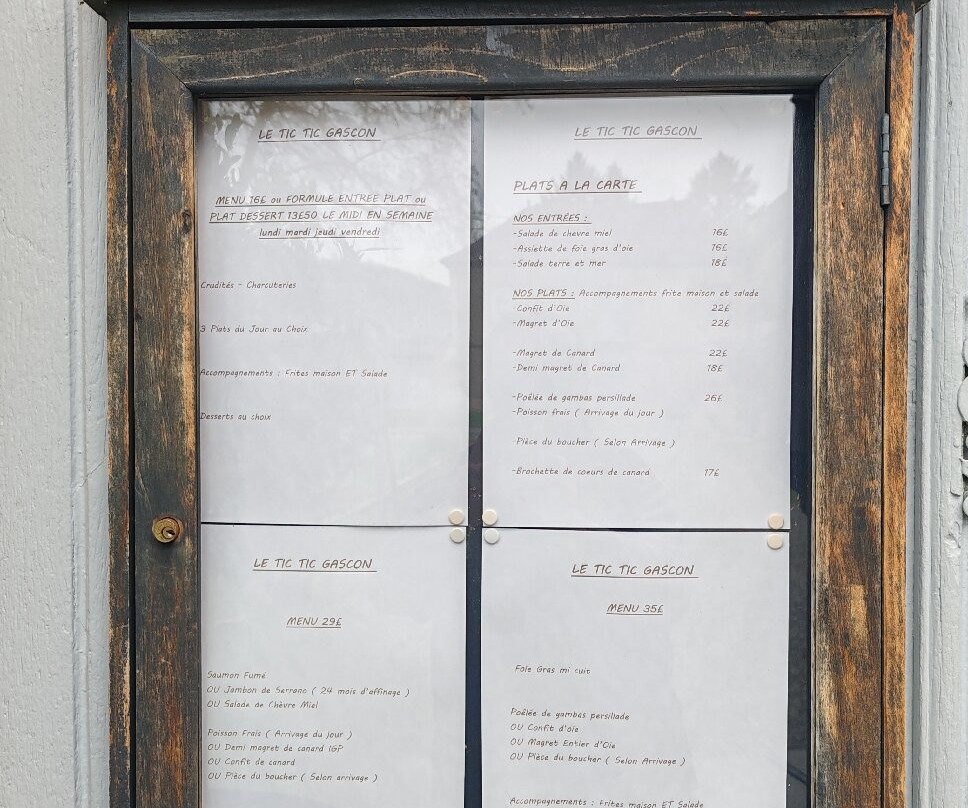 LE TIC TIC GASCON
MENU 16£ ou FORMULE ENTREE PLAT ou
PLAT DESSERT 13£50 LE MIDI EN SEMAINE
lundi mardi jeudi vendredi
Crudités - Charcuteries
3 Plats du Jour au Choix
Accompagnements : Frites maison ET Salade
Desserts au choix
LE TIC TIC GASCON
PLATS A LA CARTE
NOS ENTRÉES :
-Salade de chevre miel 16£
-Assiette de foie gras d'oie 16£
-Salade terre et mer 18£
NOS PLATS : Accompagnements frite maison et salade
-Confit d'Oie 22£
-Magret d'Oie 22£
-Magret de Canard 22£
-Demi magret de Canard 18£
-Poêlée de gambas persillade 26£
-Poisson frais ( Arrivage du jour )
-Pièce du boucher ( Selon Arrivage )
-Brochette de coeurs de canard 17£
LE TIC TIC GASCON
MENU 29£
Saumon Fumé
OU Jambon de Serrano ( 24 mois d'affinage )
OU Salade de Chèvre Miel
Poisson Frais ( Arrivage du jour )
OU Demi magret de canard IGP
OU Confit de canard
OU Pièce du boucher ( Selon arrivage )
LE TIC TIC GASCON
MENU 35£
Foie Gras mi cuit
Poêlée de gambas persillade
OU Confit d'oie
OU Magret Entier d'Oie
OU Pièce du boucher ( Selon Arrivage )
Accompagnements : Frites maison ET Salade